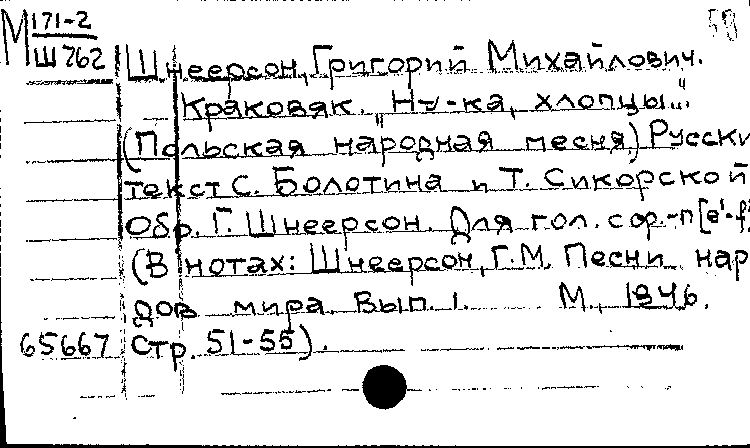 М 171-2
Ш762
58
Шнеерсон, Григорий Михайлович.
Краковяк. „Ну-ка, хлопцы..."
(Польская народная песня.) Русски
текст С. Болотина и Т. Сикорской
Обр. Г. Шнеерсон. Для гол. с фр.-п [e'-f
(В нотах: Шнеерсон, Г.М. Песни нар
дов мира. Вып. 1. М., 1946.
65667 Стр. 51-55).